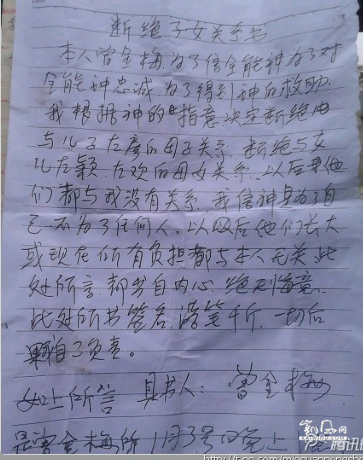 断绝子女关系书
本人曾金梅为了信全能神为了对
全能神忠诚.为了得到神的救助
我根据神的"指意决定断绝由
与儿子左彦的母子关系.断绝与女
儿左颖.左欢的母女关系.以后里他
们都与我没有关系.我信神是为了自
己.不为了任何人.以后他们长大
或现在所有负担都与本人无关.此
处所言.都出自内心.绝无悔意.
此处所书签名.落笔千斤.一切后
果自己负责.
以上所言 具书人: 曾金梅
是曾金梅所 1月3号晚上
凯风网
腾讯